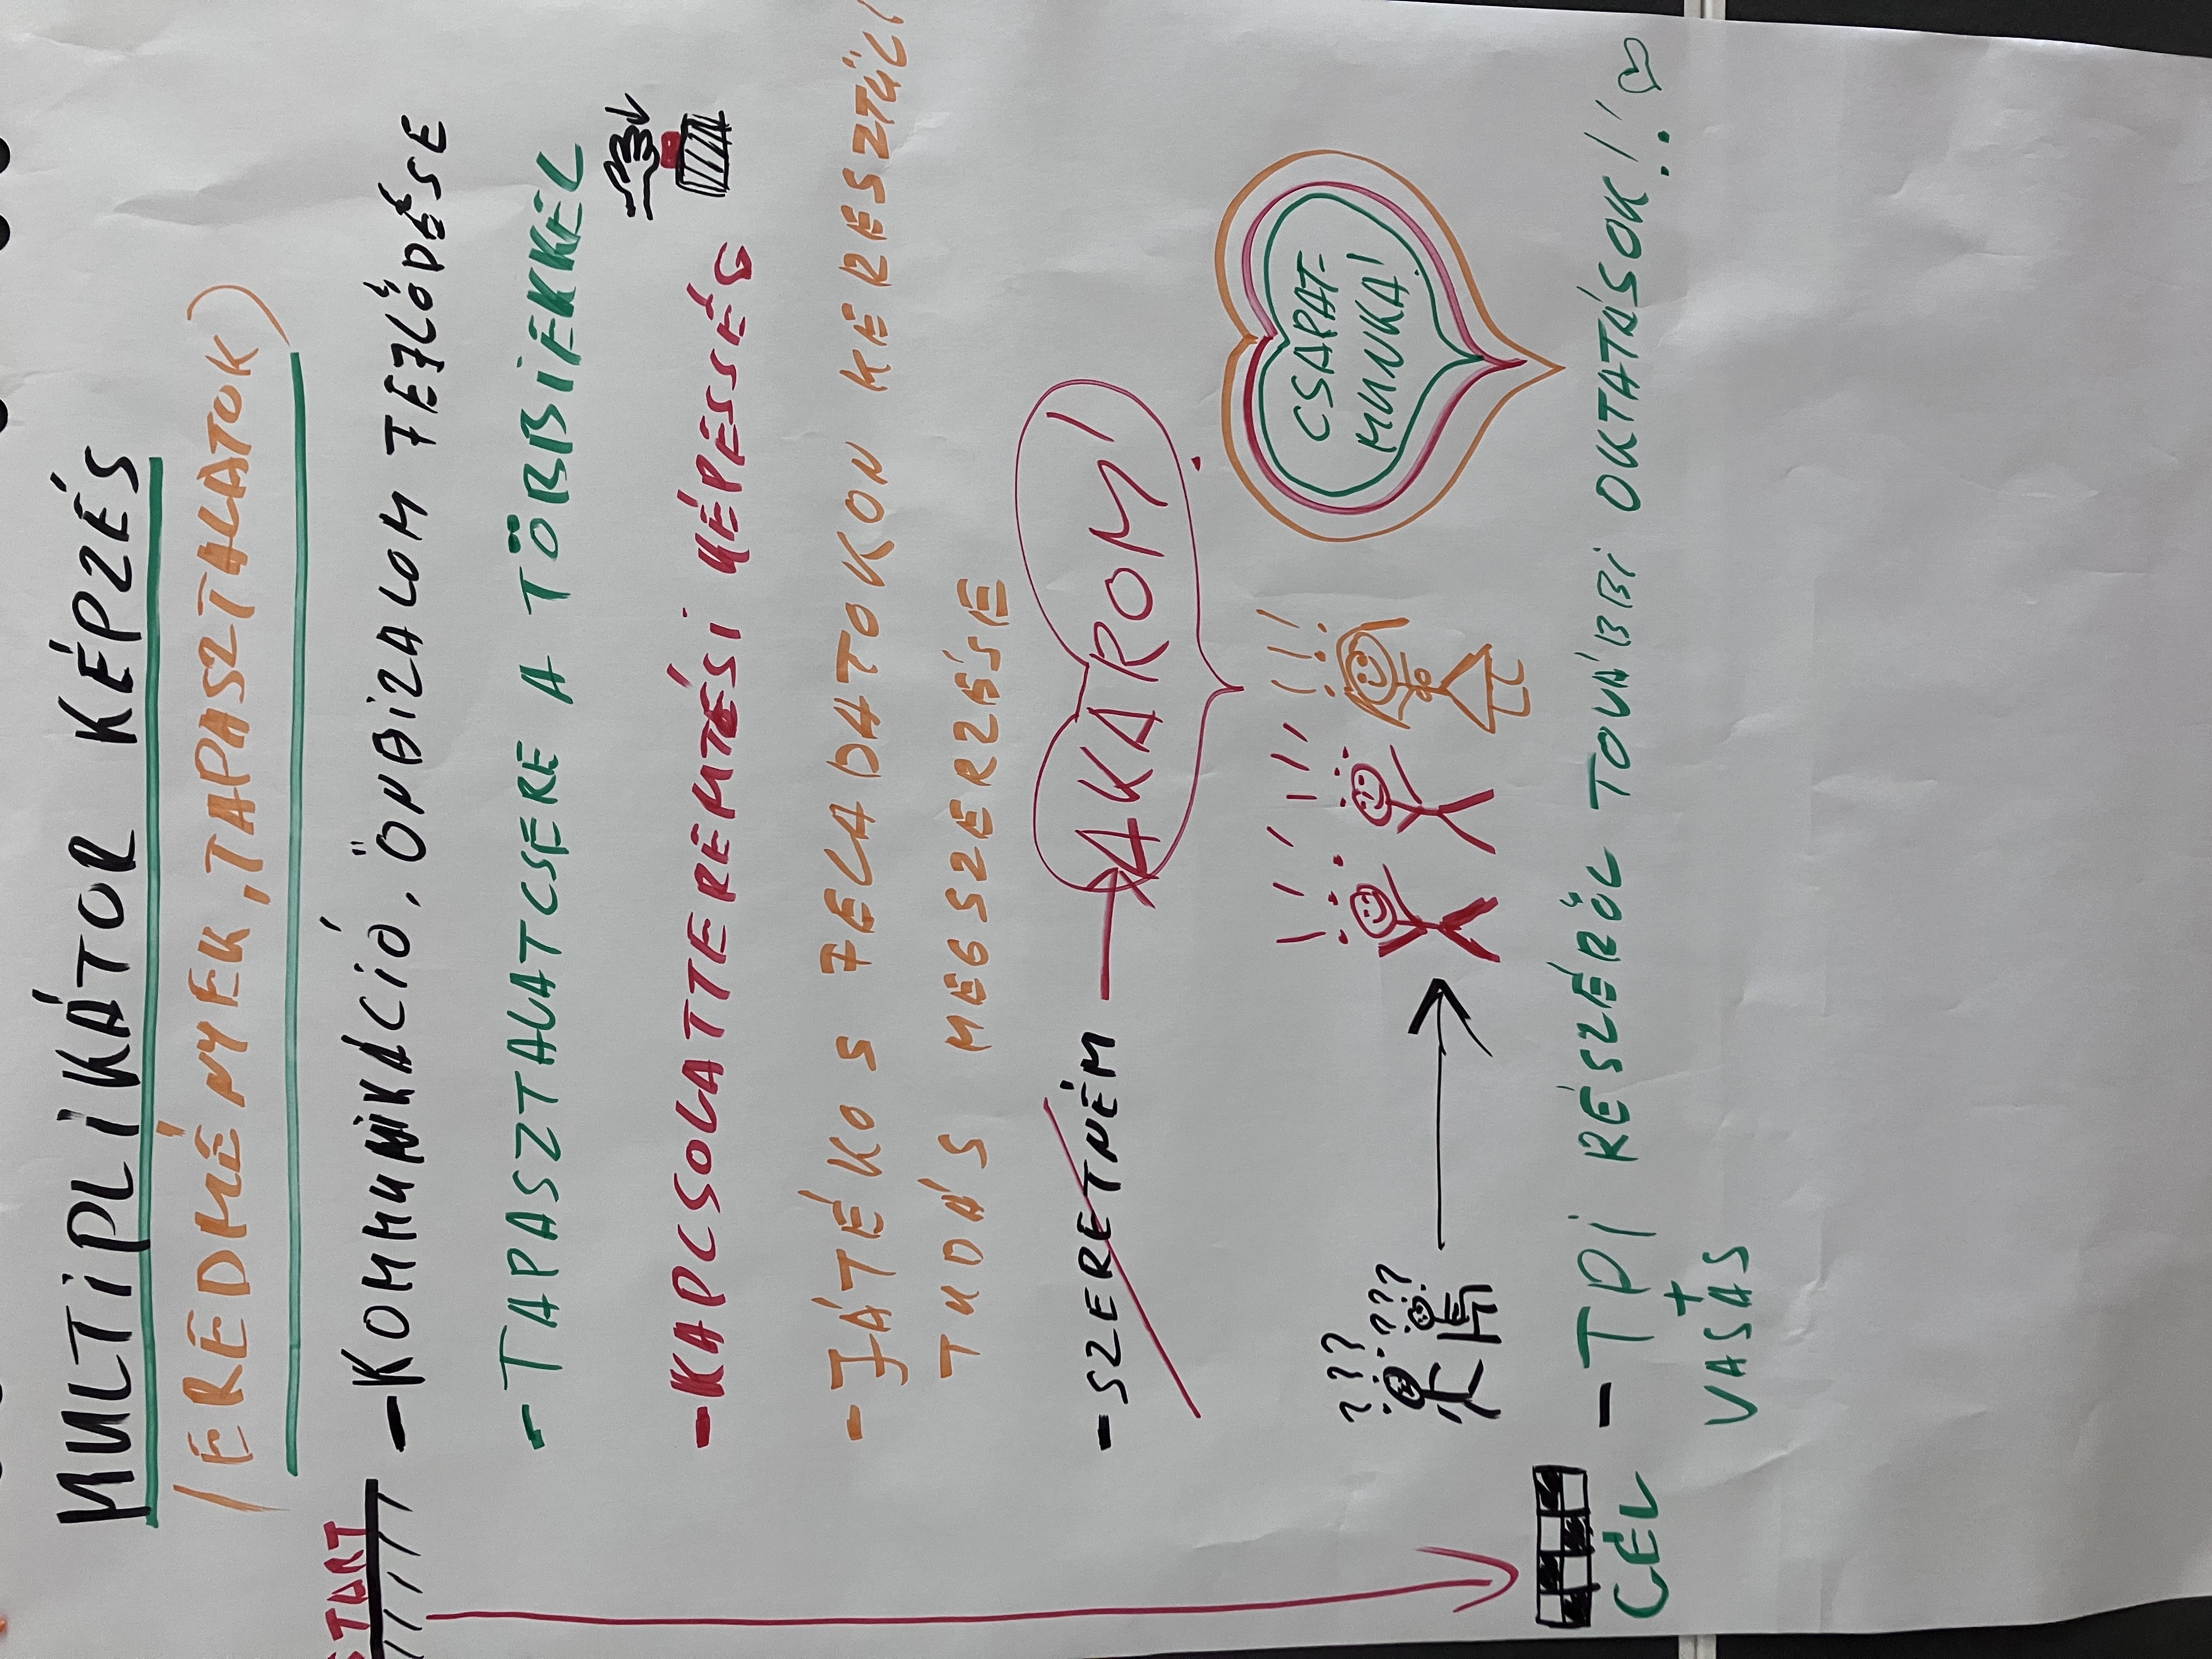 MULTIPLIKÁTOR KÉPZÉS
(EREDMÉNYEK, TAPASZTALATOK)
START
- KOMMUNIKÁCIÓ, ÖNBIZALOM FEJLŐDÉSE
- TAPASZTALATCSERE A TÖBBIEKKEL
- KAPCSOLATTEREMTÉSI KÉPESSÉG
- JÁTÉKOS FELADATOKON KERESZTÜLI
TUDÁS MEGSZERZÉSE
- SZERETNÉM → AKAROM!
CSAPAT-
MUNKA!
???
???
!!!
CÉL - TPI RÉSZÉRŐL TOVÁBBI OKTATÁSOK!!
+
VASAS